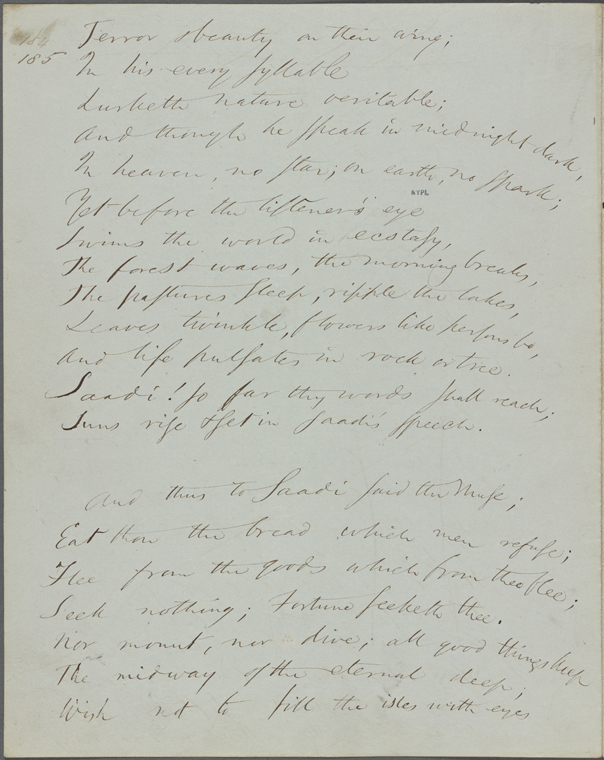 184
185
Terror & beauty on their wing;
In his every syllable
Lurketh nature veritable;
And though he speak in midnight dark,
In heaven, no star; on earth, no spark;
NYPL
Yet before the listener's eye
Swims the world in ecstasy,
The forest waves, the morning breaks,
The pastures sleep, ripple the lakes,
Leaves twinkle, flowers like persons be,
And life pulsates in rock or tree.
Saadi! so far thy words shall reach;
Suns rise & set in Saadi's speech.
And thus to Saadi said the Muse;
Eat thou the bread which men refuse;
Flee from the goods which from thee flee;
Seek nothing; Fortune seeketh thee.
Nor mount, nor dive; all good things keep
The midway of the eternal deep;
Wish not to fill the isles with eyes